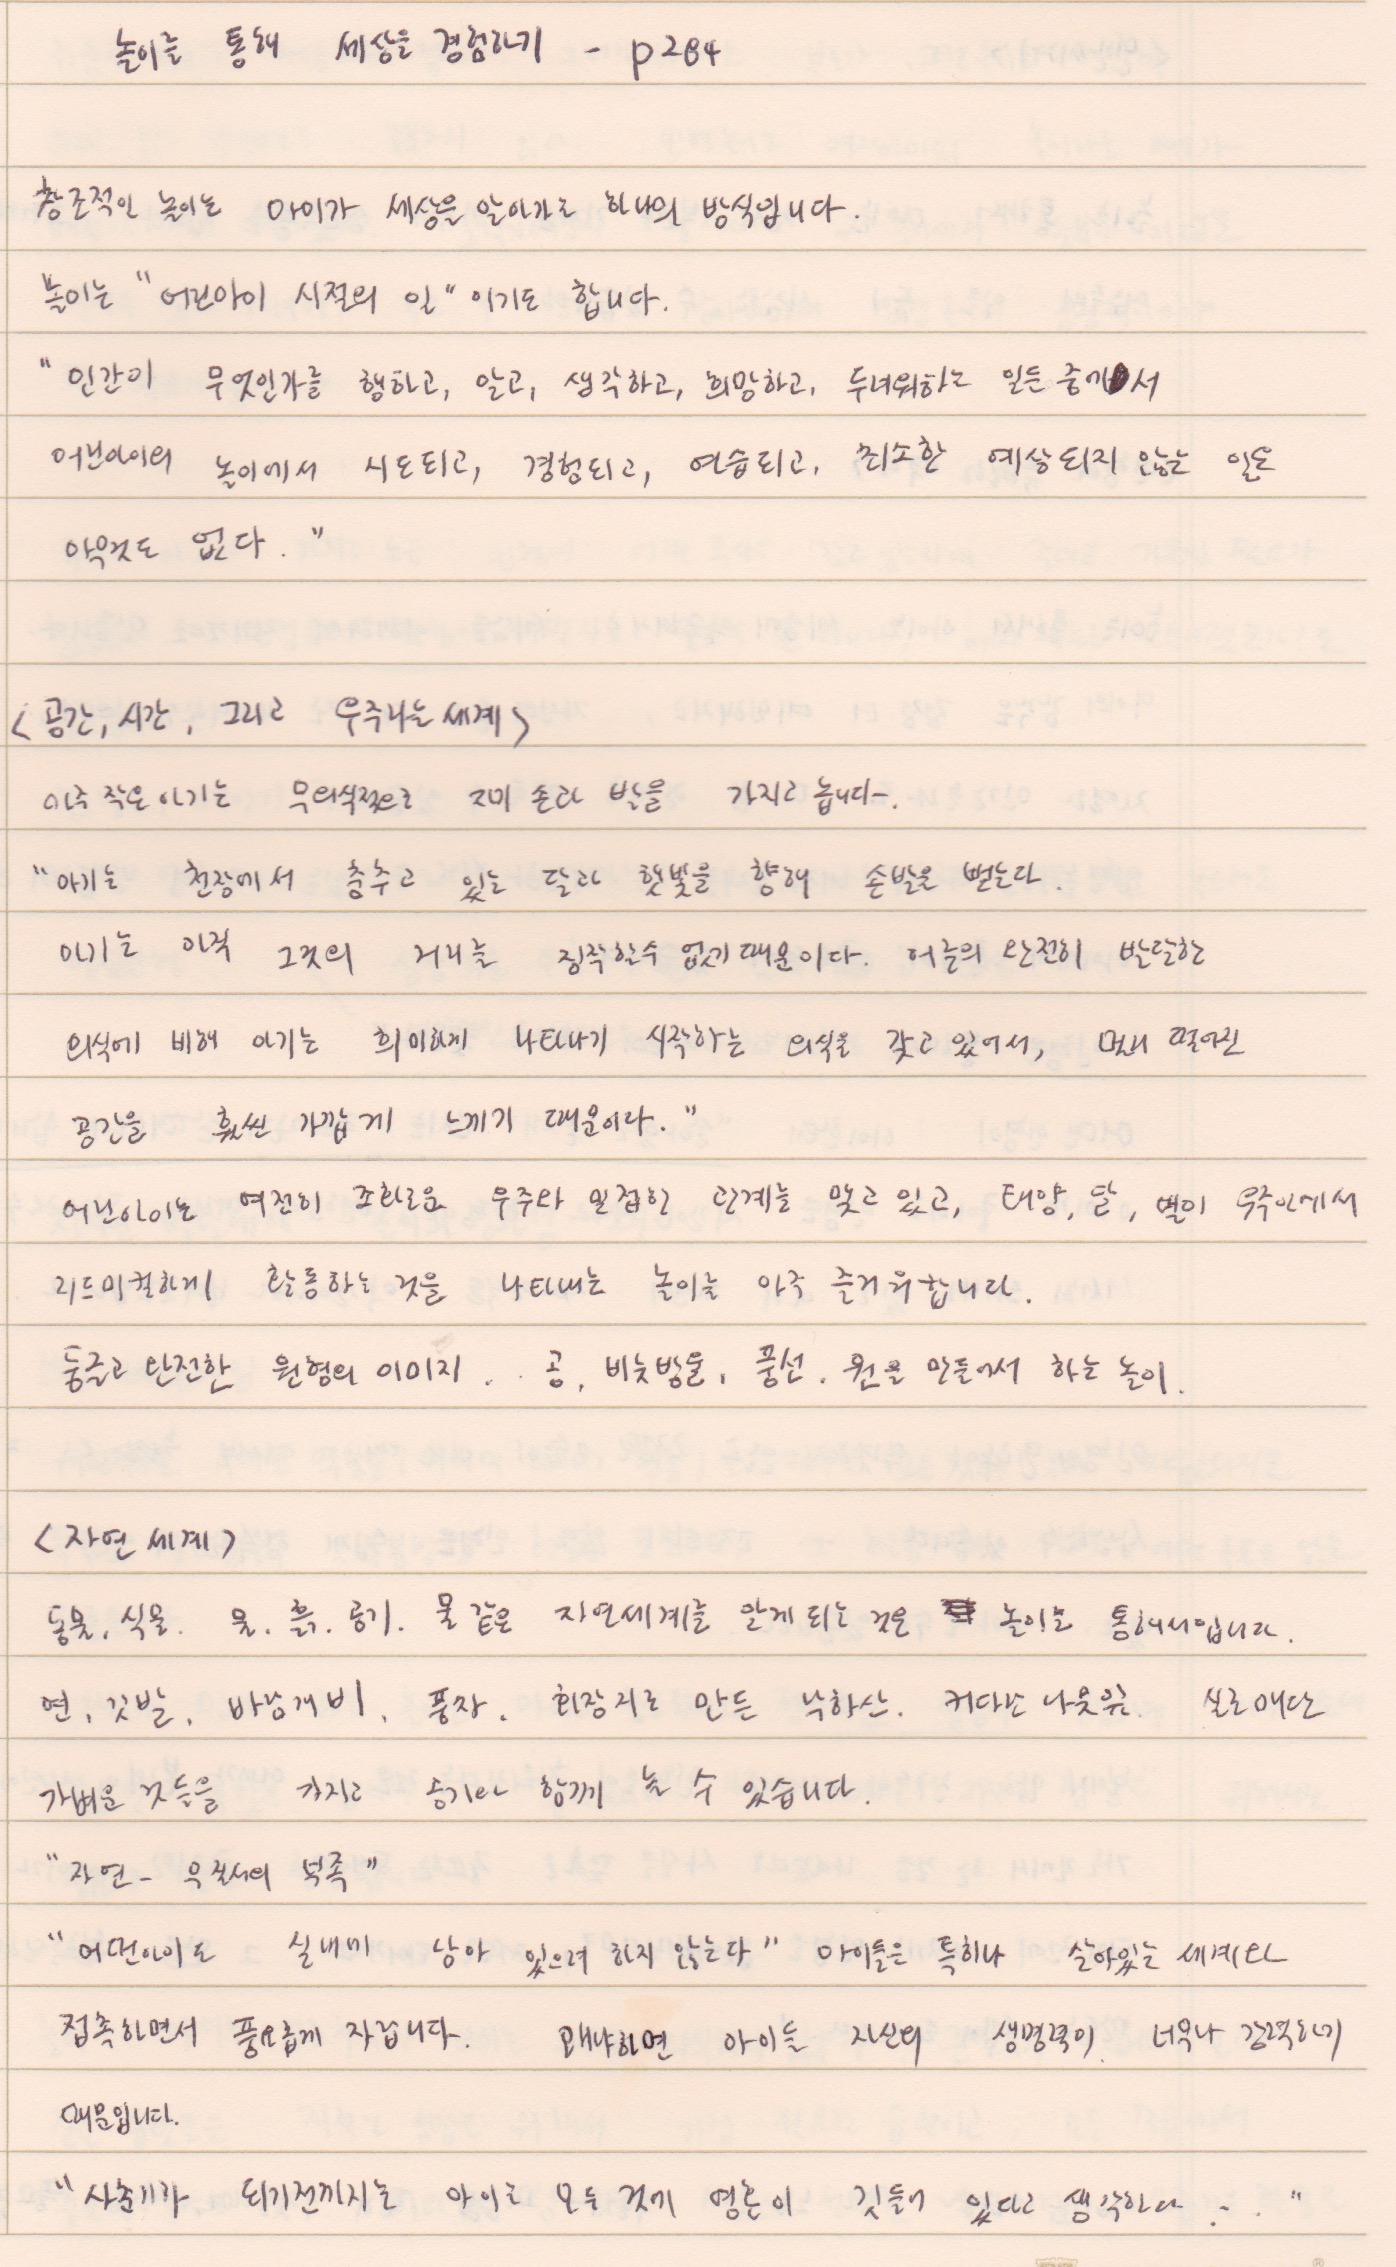 놀이를 통해 세상을 경험하기 - p284
창조적인 놀이는 아이가 세상을 알아가는 하나의 방식입니다.
놀이는 "어린아이 시절의 일" 이기도 합니다.
"인간이 무엇인가를 행하고, 알고, 생각하고, 희망하고, 두려워하는 일들 중에서
어린아이의 놀이에서 시도되고, 경험되고, 연습되고, 최소한 예상되지 않는 일은
아무것도 없다."
<공간, 시간, 그리고 우주라는 세계>
아주 작은 아기는 무의식적으로 자기 손과 발을 가지고 놉니다.
"아기는 천장에서 춤추고 있는 달과 햇빛을 향해 손발을 뻗는다.
아기는 아직 그것의 거리를 짐작할수 없기 때문이다. 어른의 완전히 발달한
의식에 비해 아기는 희미하게 나타나기 시작하는 의식을 갖고 있어서, 멀리 떨어진
공간을 훨씬 가깝게 느끼기 때문이다."
어린아이는 여전히 조화로운 우주와 밀접한 관계를 맺고 있고, 태양, 달, 별이 우주안에서
리드미컬하게 활동하는 것을 나타내는 놀이를 아주 즐거워합니다.
둥글고 완전한 원형의 이미지.. 공, 비눗방울, 풍선, 원을 만들어서 하는 놀이.
<자연 세계>
동물, 식물. 물. 흙. 공기. 불 같은 자연세계를 알게 되는 것은 놀이를 통해서입니다.
연, 깃발, 바람개비, 풍차. 화장지로 만든 낙하산. 커다란 나뭇잎. 실로 매단
가벼운 것들을 가지고 공기와 함께 놀 수 있습니다.
"자연 - 무질서의 부족"
"어떤아이도 실내에 남아 있으려 하지 않는다" 아이들은 특히나 살아있는 세계와
접촉하면서 풍요롭게 자랍니다. 왜냐하면 아이들 자신의 생명력이 너무나 강력하기
때문입니다.
"사춘기가 되기전까지는 아이는 모든 것에 영혼이 깃들어 있다고 생각한다..."